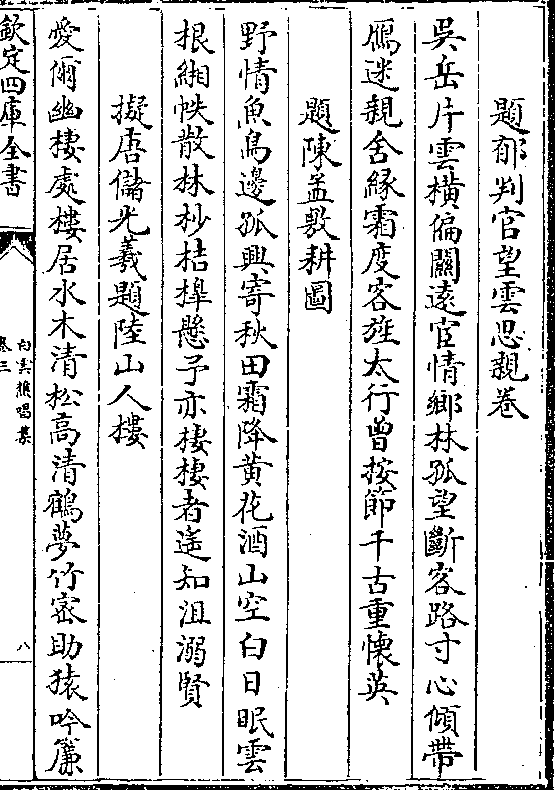 題郁判官望雲思親卷
吳岳片雲橫偏關遠宦情鄉林孤望斷客路寸心傾帶
鴈迷親舍縁霜度客旌太行曾按節千古重懷英
題陳孟敷耕圖
野情魚鳥邊孤興寄秋田霜降黄花酒山空白日眠雲
根緗帙散林杪桔槹懸予亦棲棲者遙知沮溺賢
擬唐儲光羲題陸山人樓
愛爾幽棲處樓居水木清松高清鶴夢竹密助猿吟簾
欽定四庫全書
白雲樵唱集
卷三
八